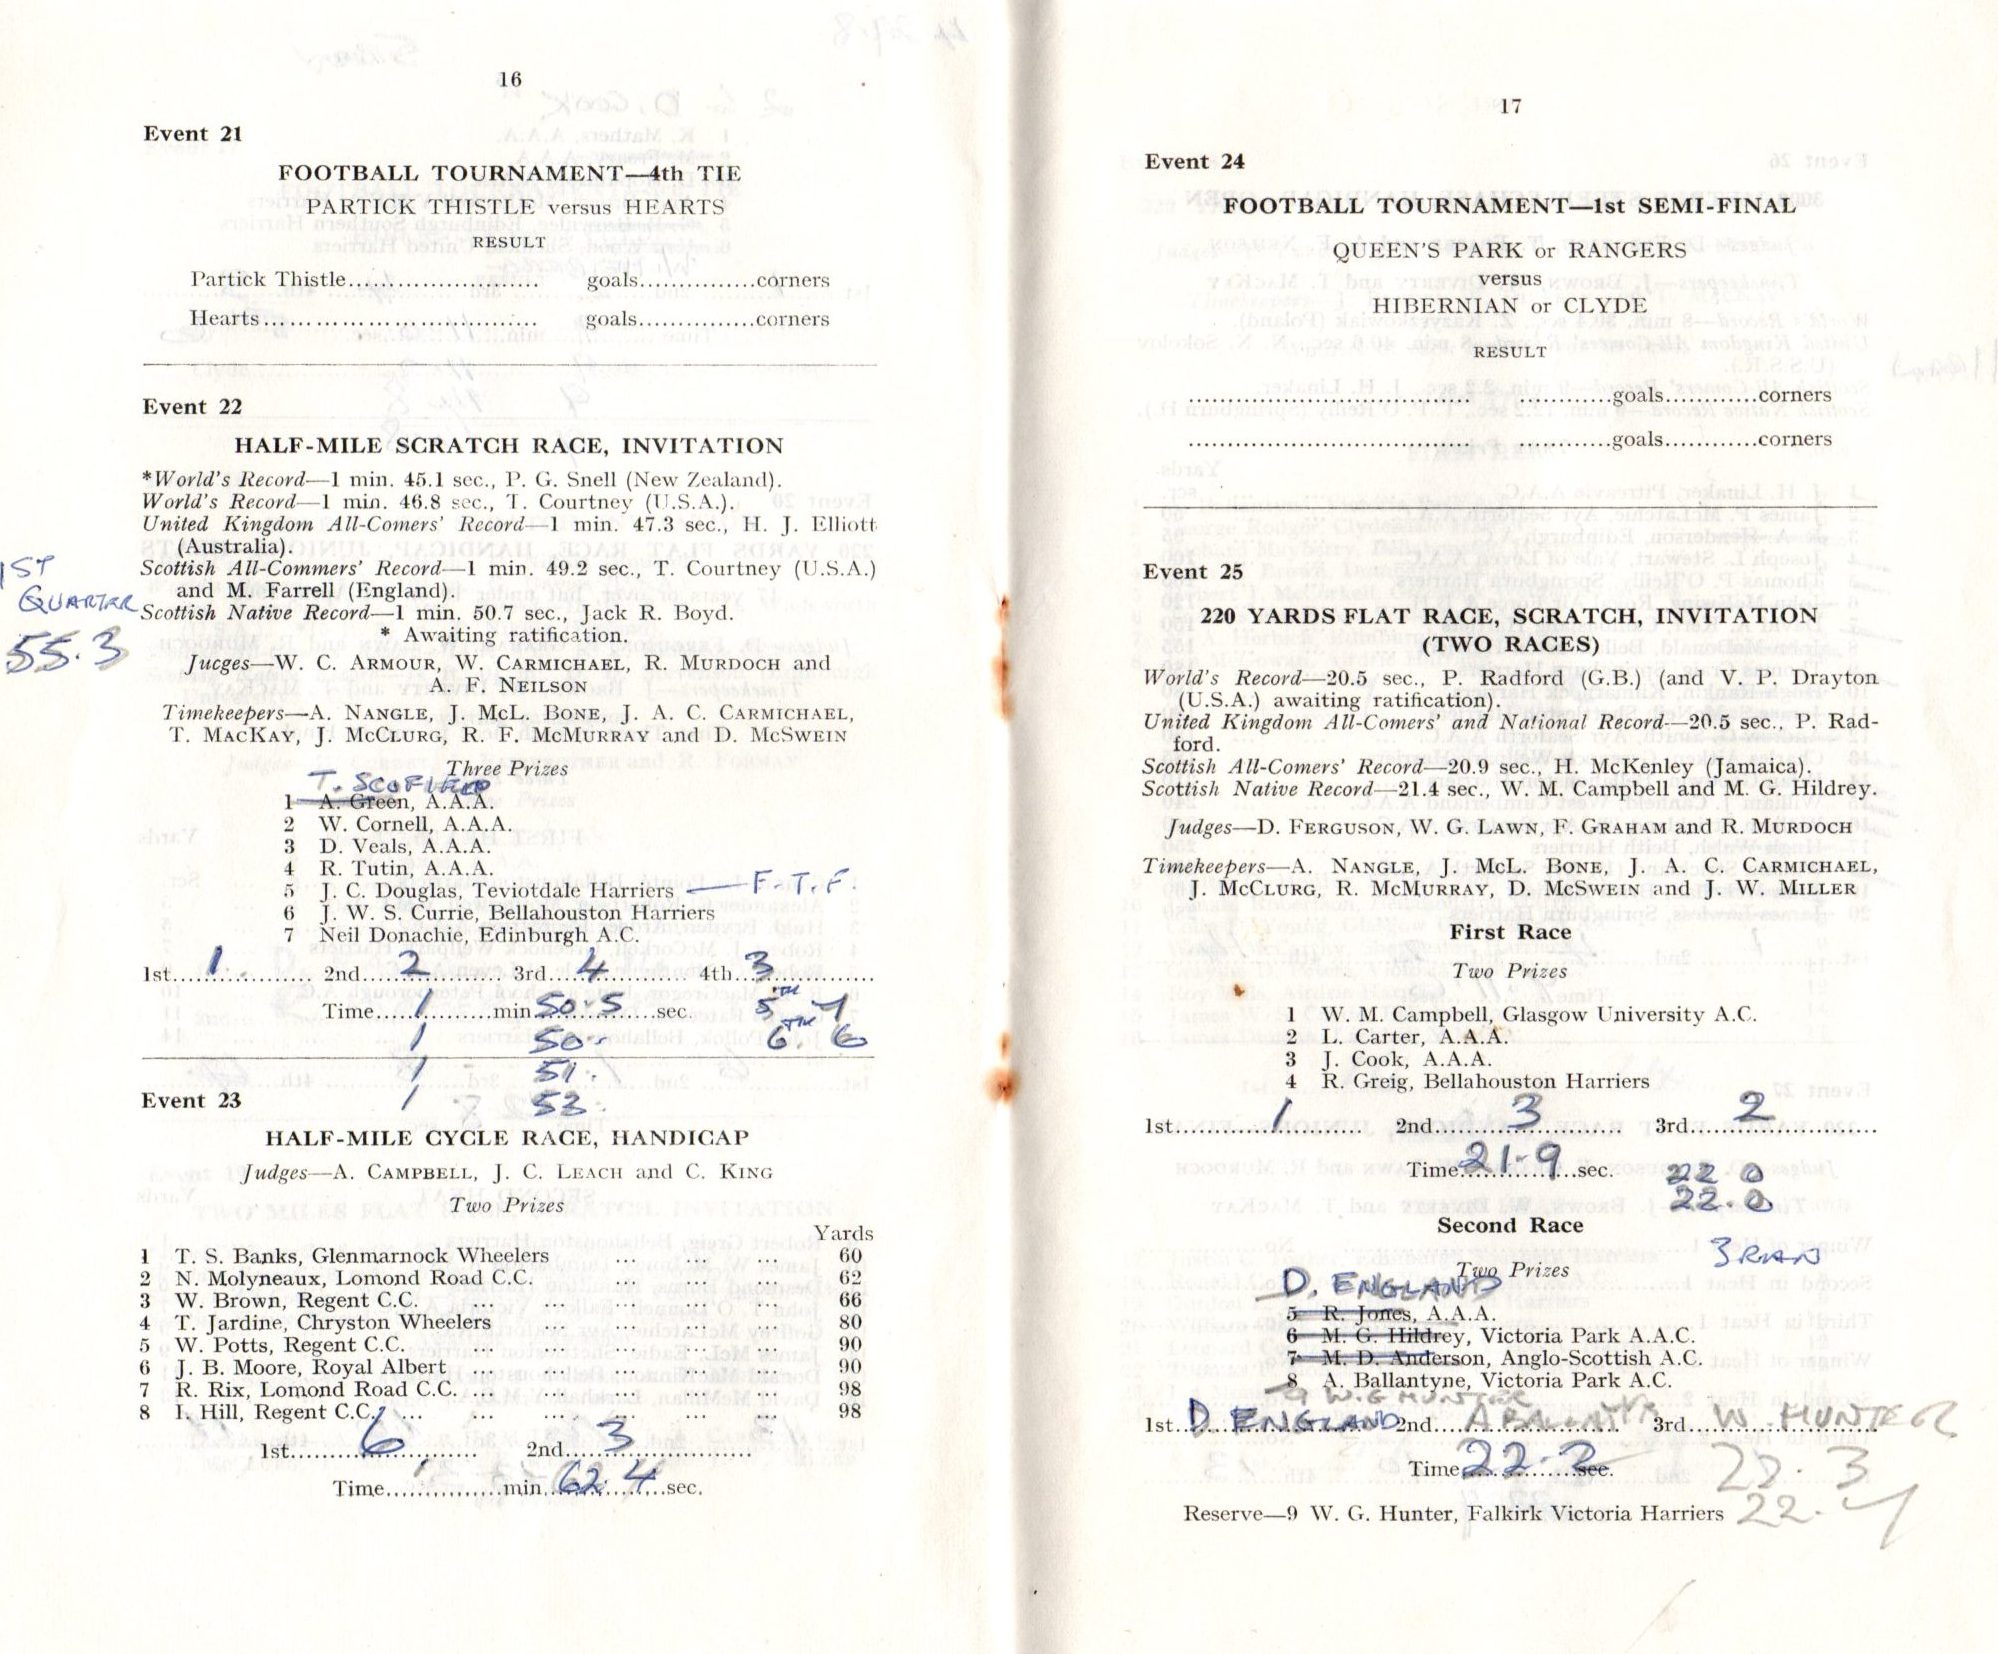 16
Event 21
FOOTBALL TOURNAMENT—4th TIE
PARTICK THISTLE versus HEARTS
RESULT
Partick Thistle........................ goals...............corners
Hearts.................................. goals...............corners
Event 22
HALF-MILE SCRATCH RACE, INVITATION
*World's Record—1 min. 45.1 sec., P. G. Snell (New Zealand).
World's Record—1 min. 46.8 sec., T. Courtney (U.S.A.).
United Kingdom All-Comers' Record—1 min. 47.3 sec., H. J. Elliott
(Australia).
Scottish All-Commers' Record—1 min. 49.2 sec., T. Courtney (U.S.A.)
and M. Farrell (England).
Scottish Native Record—1 min. 50.7 sec., Jack R. Boyd.
* Awaiting ratification.
1ST
QUARTER
55.3
Judges—W. C. ARMOUR, W. CARMICHAEL, R. MURDOCH and
A. F. NEILSON
Timekeepers—A. NANGLE, J. McL. BONE, J. A. C. CARMICHAEL,
T. MACKAY, J. MCCLURG, R. F. MCMURRAY and D. MCSWEIN
Three Prizes
T. SCOFIELD
1 A. Green, A.A.A.
2 W. Cornell, A.A.A.
3 D. Veals, A.A.A.
4 R. Tutin, A.A.A.
5 J. C. Douglas, Teviotdale Harriers — F.T.F.
6 J. W. S. Currie, Bellahouston Harriers
7 Neil Donachie, Edinburgh A.C.
1st....1.... 2nd....2.... 3rd....4.... 4th....3....
Time....1....min....50.5....sec. 5TH 7
1 50- 6TH 6
1 51.
1 53.
Event 23
HALF-MILE CYCLE RACE, HANDICAP
Judges—A. CAMPBELL, J. C. LEACH and C. KING
Two Prizes
Yards
1 T. S. Banks, Glenmarnock Wheelers ... ... ... 60
2 N. Molyneaux, Lomond Road C.C. ... ... ... 62
3 W. Brown, Regent C.C. ... ... ... ... ... 66
4 T. Jardine, Chryston Wheelers ... ... ... ... 80
5 W. Potts, Regent C.C. ... ... ... ... ... 90
6 J. B. Moore, Royal Albert ... ... ... ... ... 90
7 R. Rix, Lomond Road C.C. ... ... ... ... ... 98
8 I. Hill, Regent C.C. ... ... ... ... ... ... 98
1st....6.... 2nd....3....
Time...............min....62.4....sec.
17
Event 24
FOOTBALL TOURNAMENT—1st SEMI-FINAL
QUEEN'S PARK or RANGERS
versus
HIBERNIAN or CLYDE
RESULT
.................................. ............goals............corners
.................................. ............goals............corners
Event 25
220 YARDS FLAT RACE, SCRATCH, INVITATION
(TWO RACES)
World's Record—20.5 sec., P. Radford (G.B.) (and V. P. Drayton
(U.S.A.) awaiting ratification).
United Kingdom All-Comers' and National Record—20.5 sec., P. Rad-
ford.
Scottish All-Comers' Record—20.9 sec., H. McKenley (Jamaica).
Scottish Native Record—21.4 sec., W. M. Campbell and M. G. Hildrey.
Judges—D. FERGUSON, W. G. LAWN, F. GRAHAM and R. MURDOCH
Timekeepers—A. NANGLE, J. McL. BONE, J. A. C. CARMICHAEL,
J. MCCLURG, R. MCMURRAY, D. MCSWEIN and J. W. MILLER
First Race
Two Prizes
1 W. M. Campbell, Glasgow University A.C.
2 L. Carter, A.A.A.
3 J. Cook, A.A.A.
4 R. Greig, Bellahouston Harriers
1st....1.... 2nd....3.... 3rd....2....
Time....21.9....sec. 22 0
22.0
Second Race
3 RAN
Two Prizes
D. ENGLAND
5 R. Jones, A.A.A.
6 M. G. Hildrey, Victoria Park A.A.C.
7 M. D. Anderson, Anglo-Scottish A.C.
8 A. Ballantyne, Victoria Park A.C.
9 W.G HUNTER
1st..D. ENGLAND 2nd.... 3rd..W. HUNTER
Time....22.2....sec. 22.3
Reserve—9 W. G. Hunter, Falkirk Victoria Harriers 22.7